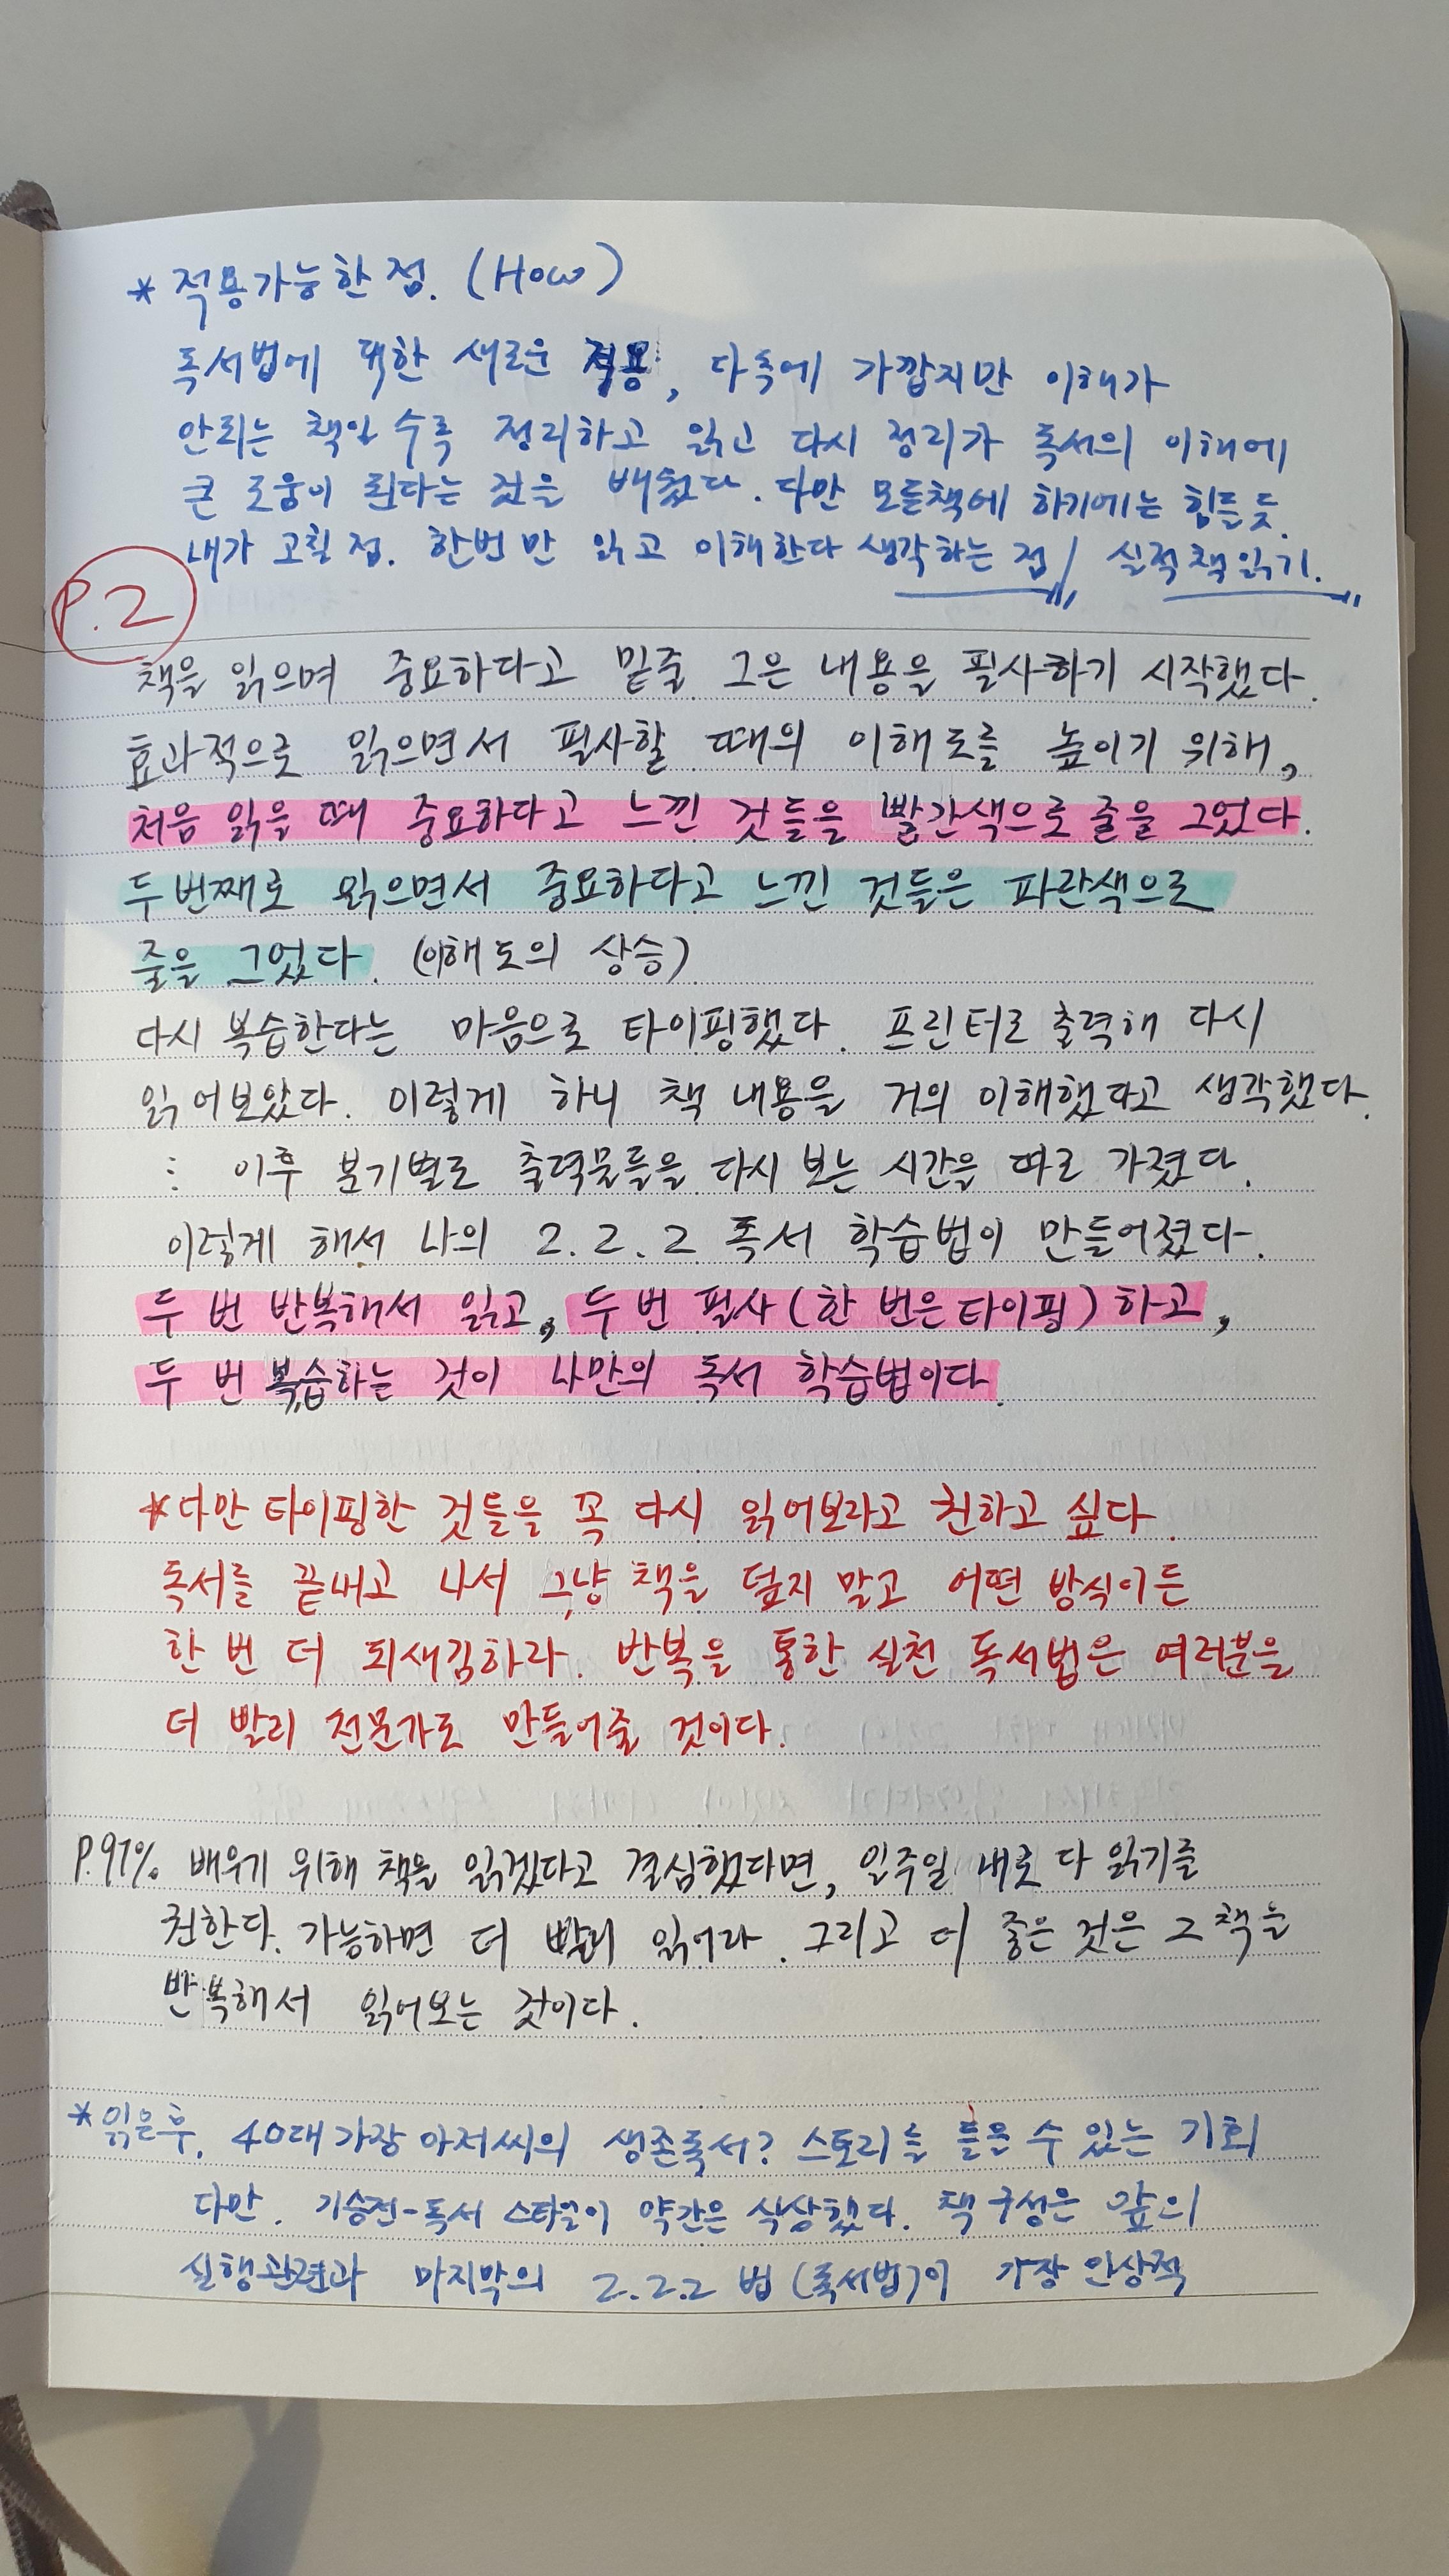 * 적용가능한 점. (How)
독서법에 대한 새로운 적용, 다독에 가깝지만 이해가
안되는 책일수록 정리하고 읽고 다시 정리가 독서의 이해에
큰 도움이 된다는 것을 배웠다. 다만 모든책에 하기에는 힘들듯.
내가 고칠 점. 한번만 읽고 이해한다 생각하는 점/ 실적책읽기.
P.2
책을 읽으며 중요하다고 밑줄 그은 내용을 필사하기 시작했다.
효과적으로 읽으면서 필사할 때의 이해도를 높이기 위해,
처음 읽을 때 중요하다고 느낀 것들을 빨간색으로 줄을 그었다.
두번째로 읽으면서 중요하다고 느낀 것들은 파란색으로
줄을 그었다. (이해도의 상승)
다시 복습한다는 마음으로 타이핑했다. 프린터로 출력해 다시
읽어보았다. 이렇게 하니 책 내용을 거의 이해했다고 생각했다.
⋮ 이후 분기별로 출력물들을 다시 보는 시간을 따로 가졌다.
이렇게 해서 나의 2.2.2 독서 학습법이 만들어졌다.
두 번 반복해서 읽고, 두 번 필사(한 번은 타이핑)하고,
두 번 복습하는 것이 나만의 독서 학습법이다.
*다만 타이핑한 것들을 꼭 다시 읽어보라고 권하고 싶다.
독서를 끝내고 나서 그냥 책을 덮지 말고 어떤 방식이든
한 번 더 되새김하라. 반복을 통한 실천 독서법은 여러분을
더 빨리 전문가로 만들어줄 것이다.
P.97% 배우기 위해 책을 읽겠다고 결심했다면, 일주일 내로 다 읽기를
권한다. 가능하면 더 빨리 읽어라. 그리고 더 좋은 것은 그 책을
반복해서 읽어보는 것이다.
*읽은후. 40대 가장 아저씨의 생존독서? 스토리를 들을 수 있는 기회
다만. 기승전-독서 스타일이 약간은 식상했다. 책 구성은 앞의
실행관련과 마지막의 2.2.2 법 (독서법)이 가장 인상적